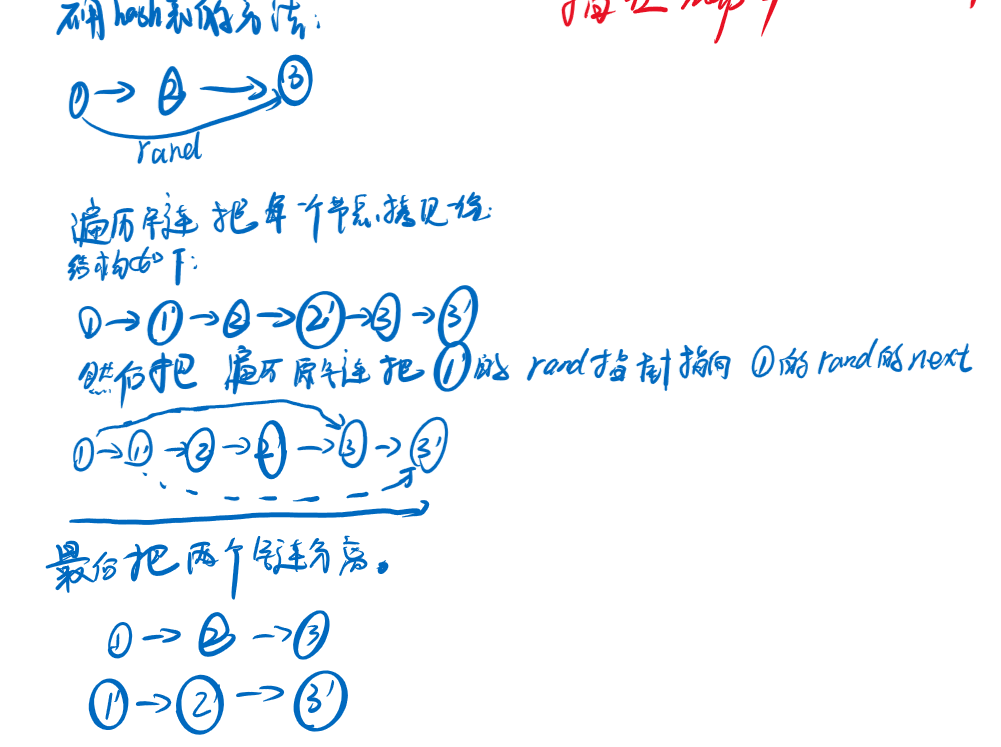 不用hash表的方法:
1 → 2 → 3
rand
遍历单链 把每一个节点拷贝一份
结构如下:
1 → 1' → 2 → 2' → 3 → 3'
然后把 遍历原单链 把 1' 的 rand指针指向 1 的 rand的next
1 → 1' → 2 → 2' → 3 → 3'
最后把两个单链分离。
1 → 2 → 3
1' → 2' → 3'